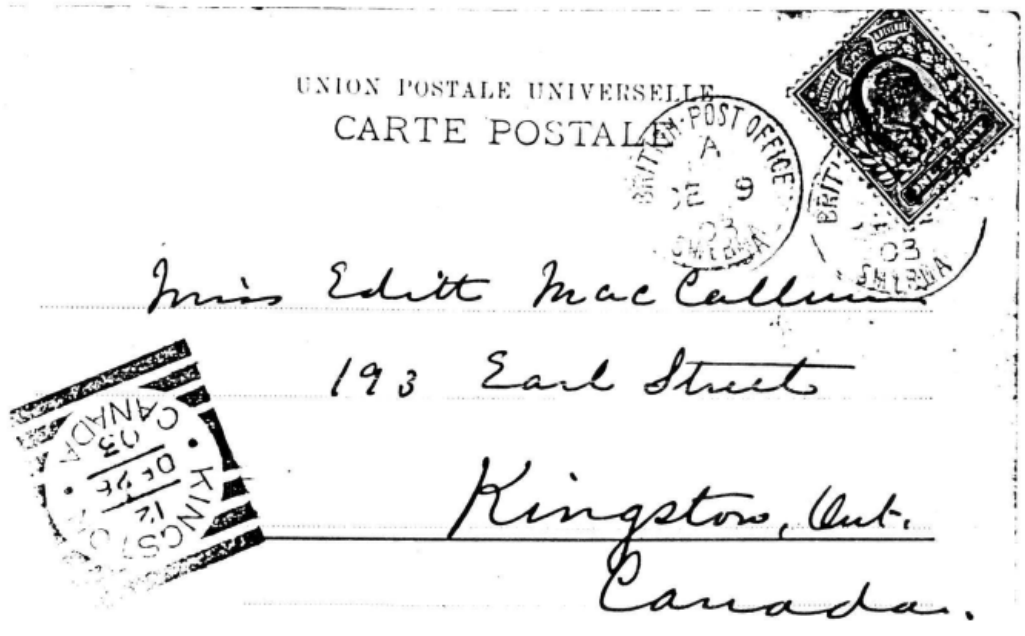 UNION POSTALE UNIVERSELLE
CARTE POSTALE
BRITISH POST OFFICE
A
DE 9
03
SMYRNA
POSTAGE & REVENUE
LEVANT
ONE PENNY
03
SMYRNA
Miss Edith MacCallum
193 Earl Street
Kingston, Ont.
Canada.
KINGSTON
12
DE 26
03
CANADA